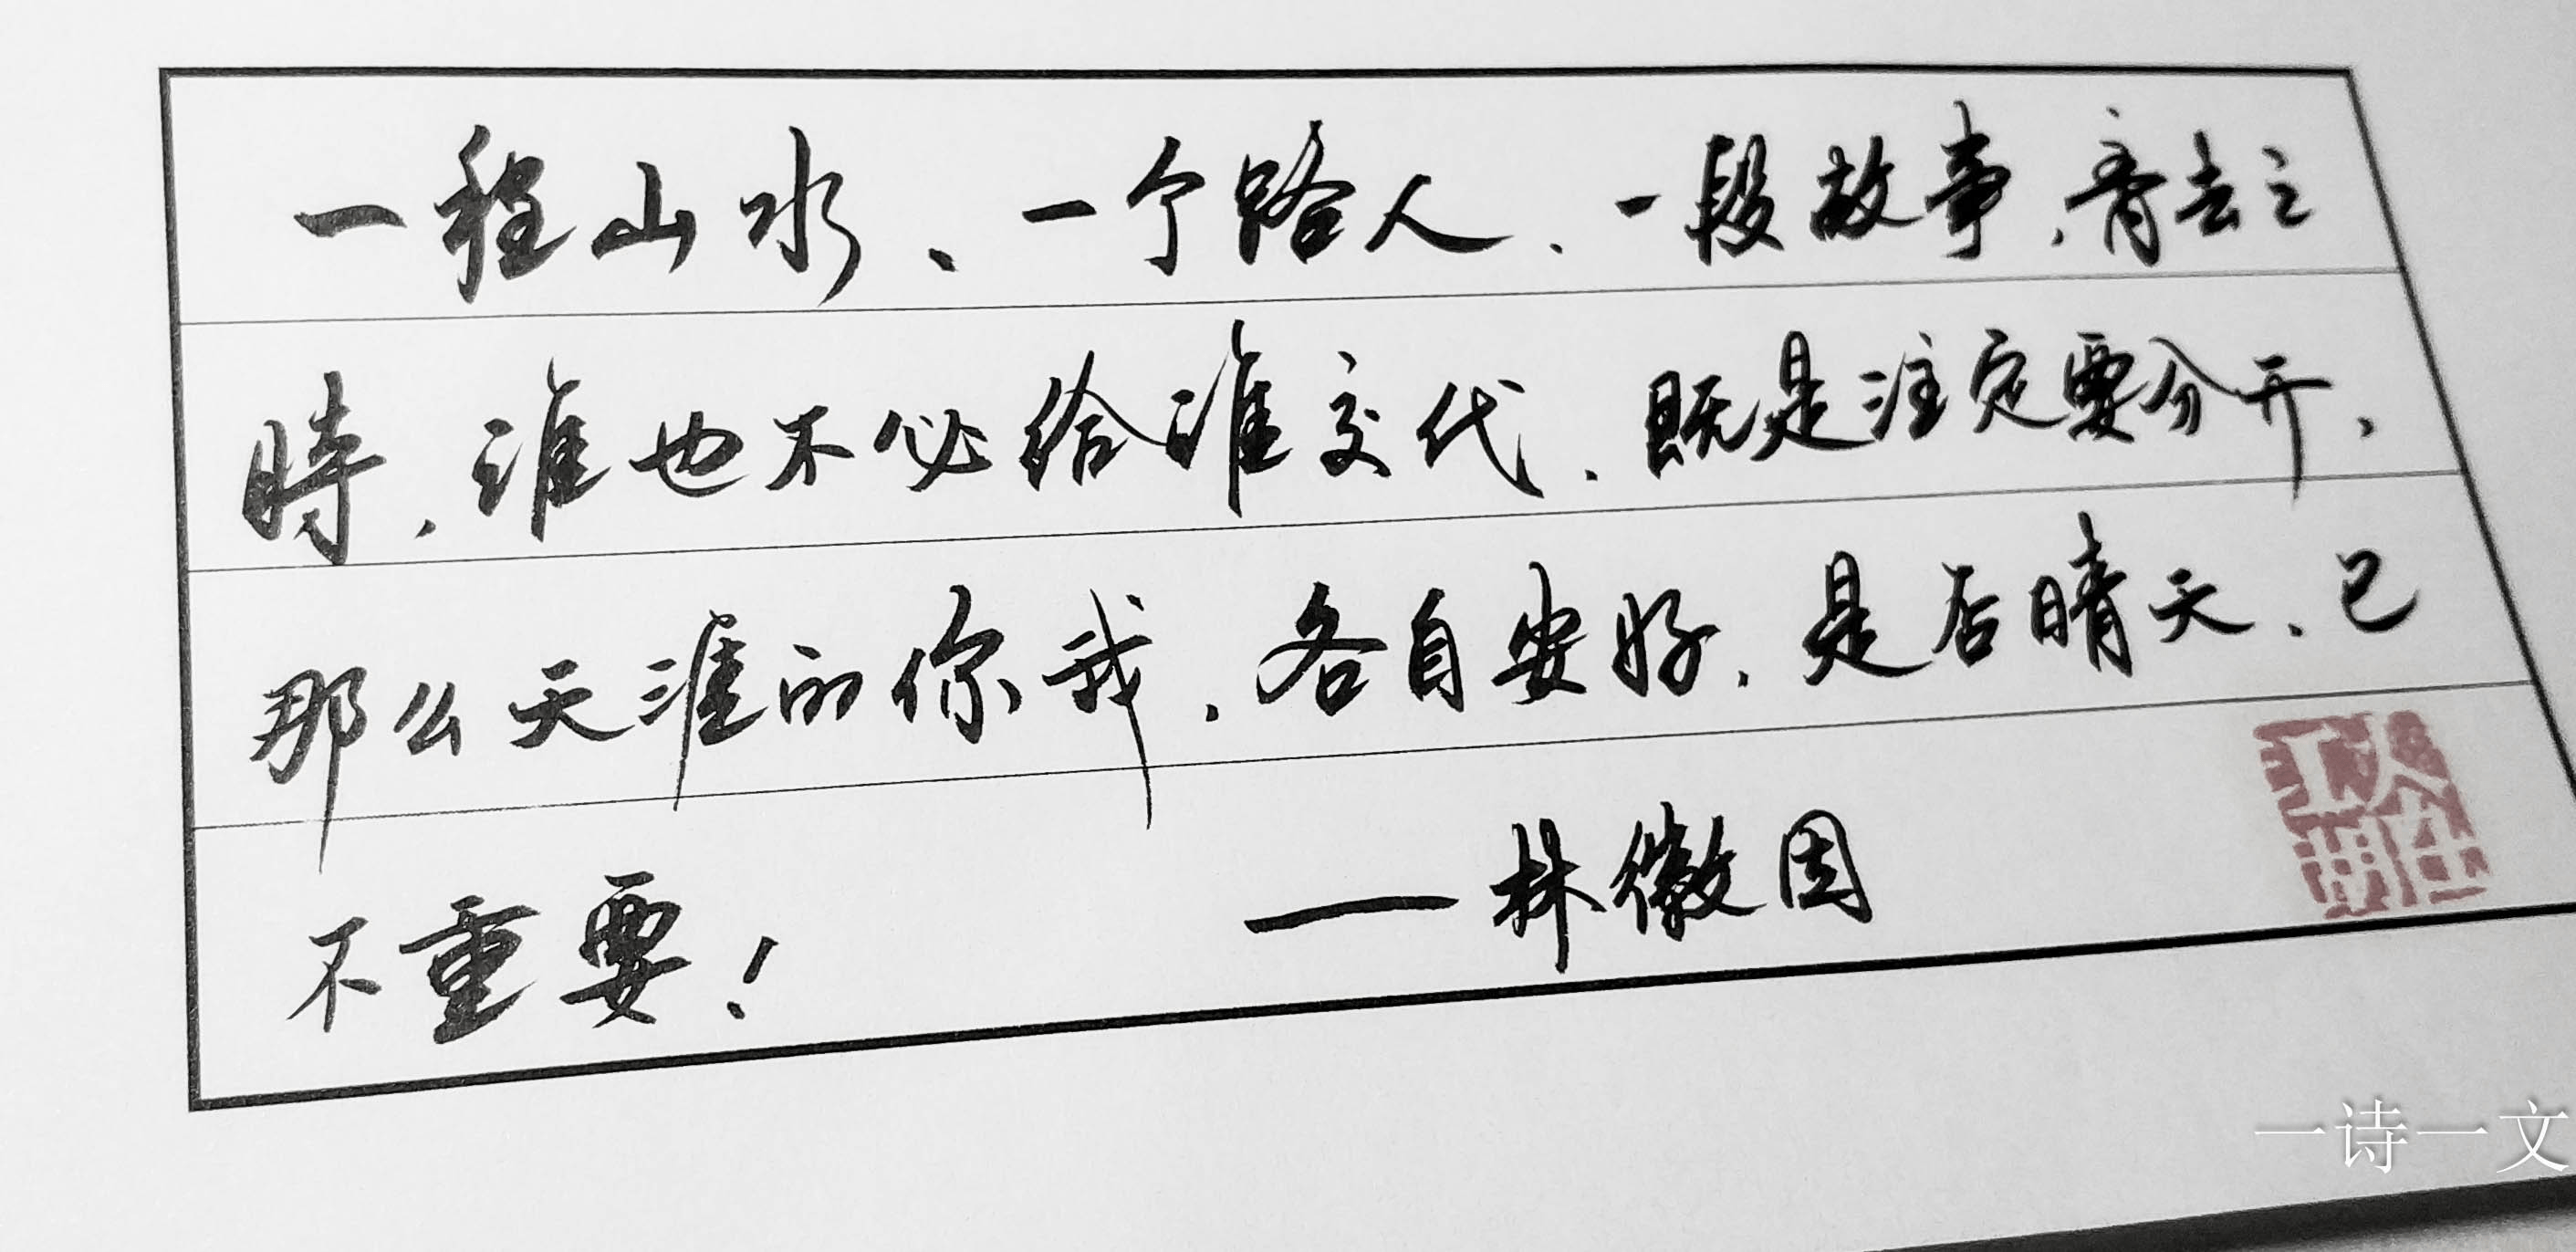 一程山水、一个路人、一段故事,背去之
時,谁也不必给谁交代,既是注定要分开,
那么天涯的你我,各自安好,是否晴天、已
不重要!
——林徽因
一诗一文